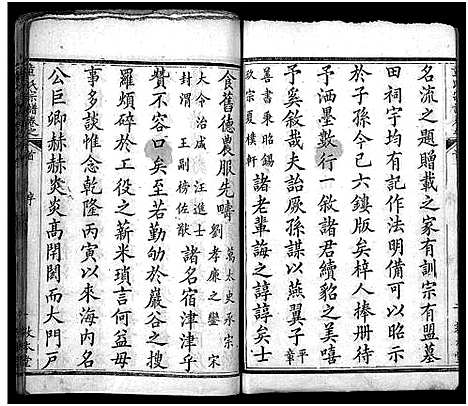 名流之題贈載之家有訓宗有盟墓
田祠宇均有記作法明備可以待
於子孫今已六鐫版矣梓人捧冊待
予洒墨數行一敘諸君續貌山斗
予奚敘哉夫詒厥孫謀以燕翼子平章
善書秉昭錫
玖宗夏樸軒
諸老輩誨之諄諄矣士
食舊德農服先疇
萬太史承宗
劉孝廉之鑾
宋
大令治成
汪進士
封渭
王副榜佐猷
諸名宿津津乎
贊不容口矣至若勤劬於巖谷之搜
羅煩碎於工役之薪米瑣言何益毋
事多談惟念乾隆丙寅以來海內名
公巨卿赫赫炎炎高閈閎而大門戶
氏宗譜卷之首
序